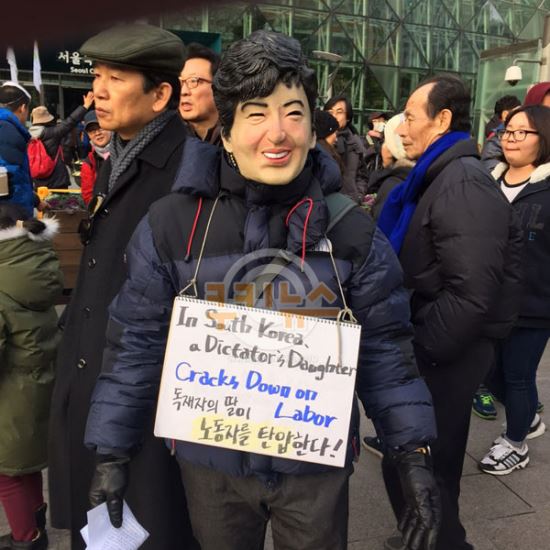 서울
Seoul
쿠키뉴스
In South Korea,
a Dictator's Daughter
Cracks Down on
Labor
독재자의 딸이
노동자를 탄압한다!